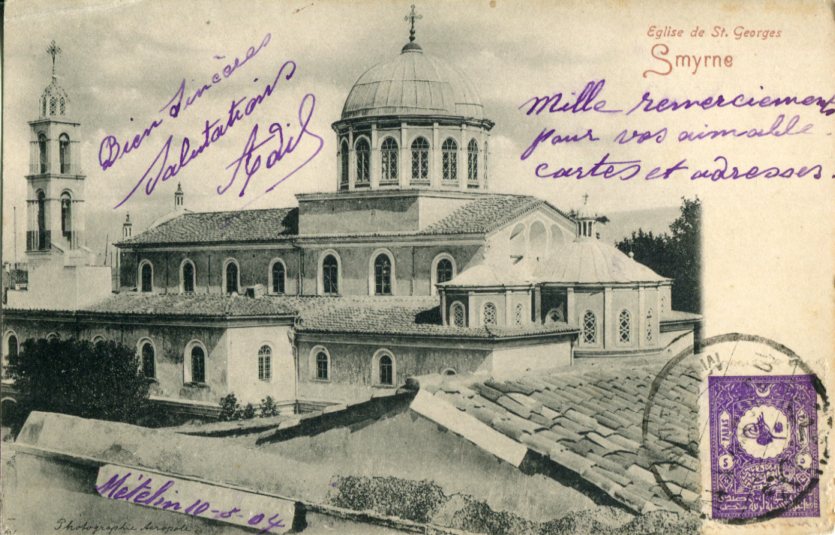 Eglise de St. Georges
Smyrne
Bien Sincères
Salutations
Adil
Mille remerciements
pour vos aimable
cartes et adresses.
5 PARAS
Mételin 10-5-04
Photographie Acropole